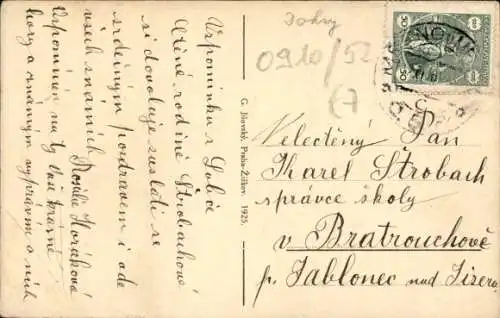 Vzpomínku z Lobče
Ctěné rodině Štrobachově
si dovoluje zaslati se
srdečným pozdravem i ode
všech známých
Rosálie Horáková
Vzpomínám na ty Vaše krásné
hory a známým vyprávím o nich
G. Jilovský, Praha-Žižkov. 1925.
Johny
0910/52
(7
50 50
Velectěný Pan
Karel Štrobach
správce školy
v Bratrouchově
p. Jablonec nad Jizerou